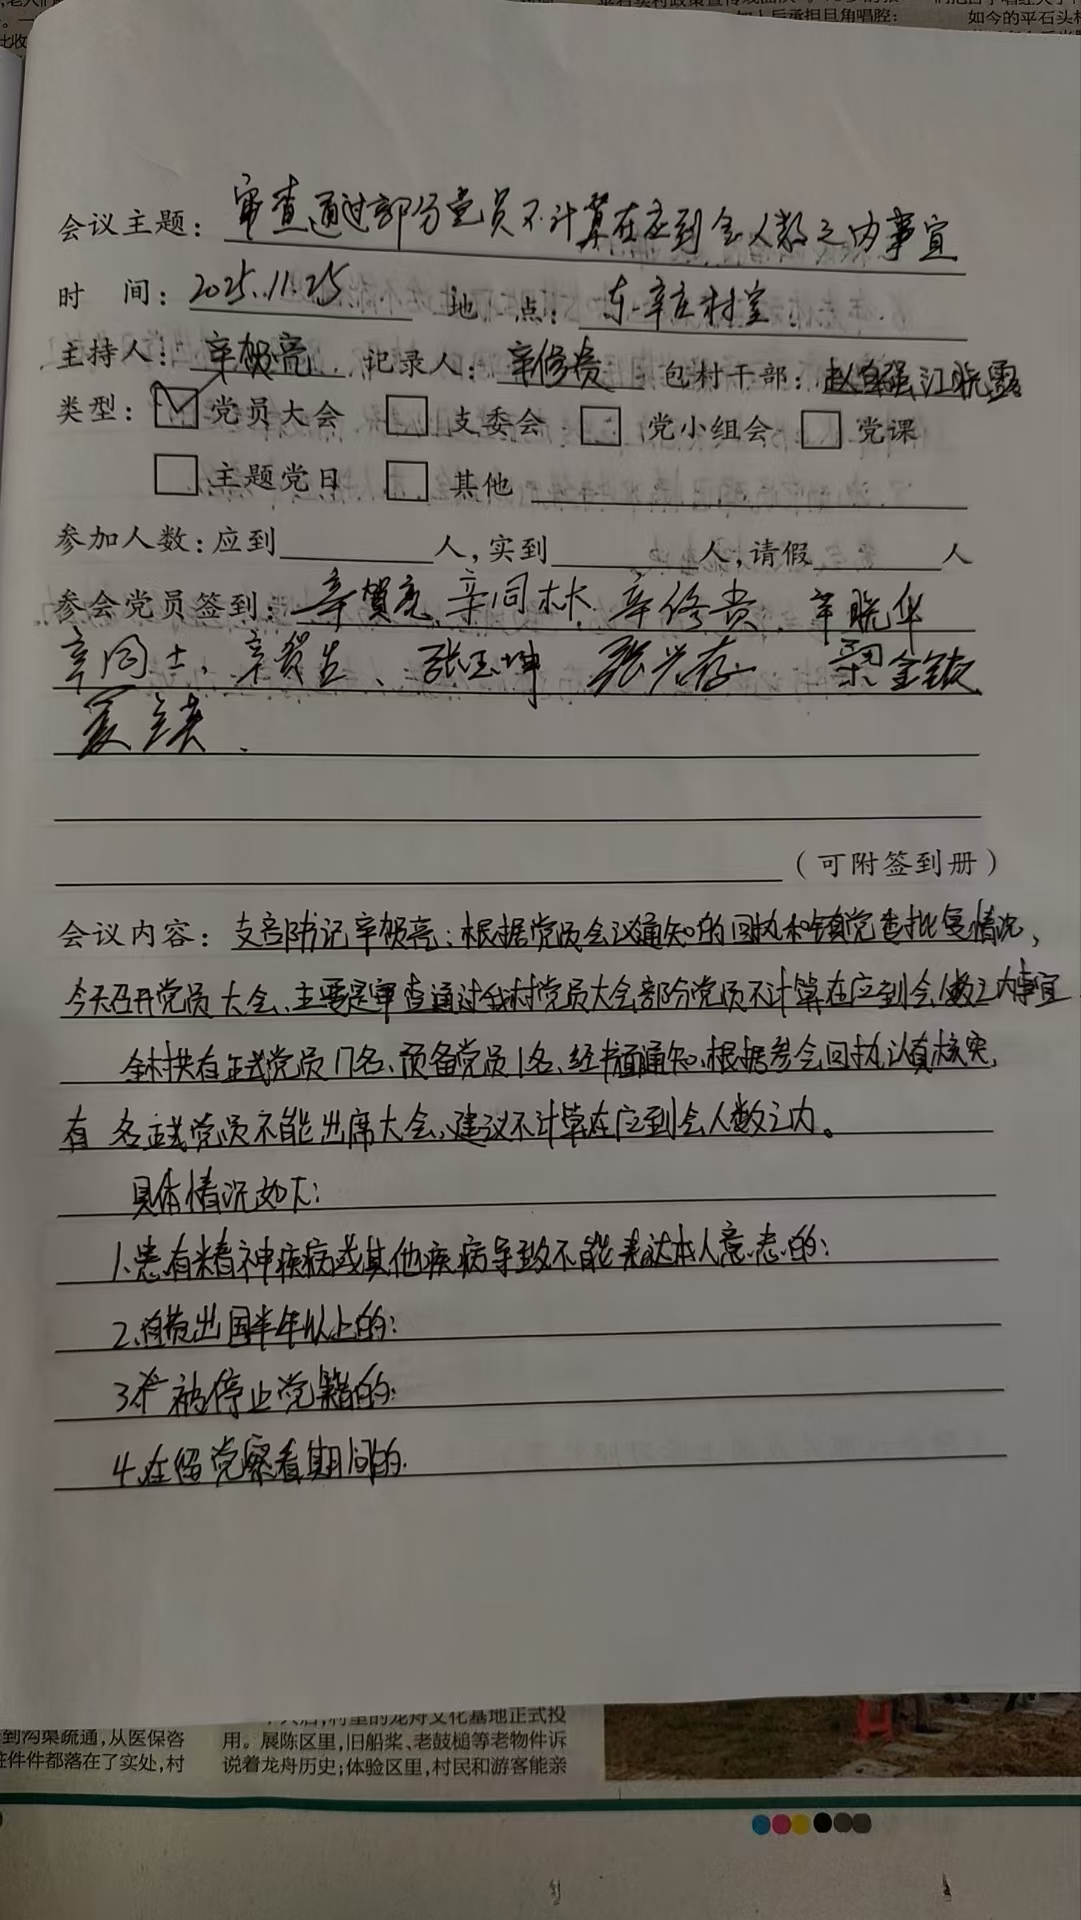 如今的平石头村
会议主题：审查通过部分党员不计算在应到会人数之内事宜
时 间：2025.11.25 地 点：东辛庄村室
主持人：辛贺亮 记录人：辛修贵 包村干部：赵自强 江晓露
类型：☑党员大会 □支委会 □党小组会 □党课
□主题党日 □其他
参加人数：应到 人，实到 人，请假 人
参会党员签到：辛贺亮 辛同林 辛修贵 辛晓华
辛同士、辛贺 、张玉坤 张兴存 梁金钦
夏
（可附签到册）
会议内容：支部书记辛贺亮：根据党员会议通知的回执和镇党委批复情况，
今天召开党员大会、主要是审查通过我村党员大会部分党员不计算在应到会人数之内事宜
全村共有正式党员17名、预备党员1名、经书面通知、根据参会回执认真核实，
有 名正式党员不能出席大会、建议不计算在应到会人数之内。
具体情况如下：
1.患有精神疾病或其他疾病导致不能表达本人意志的：
2.自费出国半年以上的：
3. 被停止党籍的：
4.在留党察看期间的.
到沟渠疏通，从医保咨
件件都落在了实处，村
村里的龙舟文化基地正式投
用。展陈区里，旧船桨、老鼓槌等老物件诉
说着龙舟历史；体验区里，村民和游客能亲